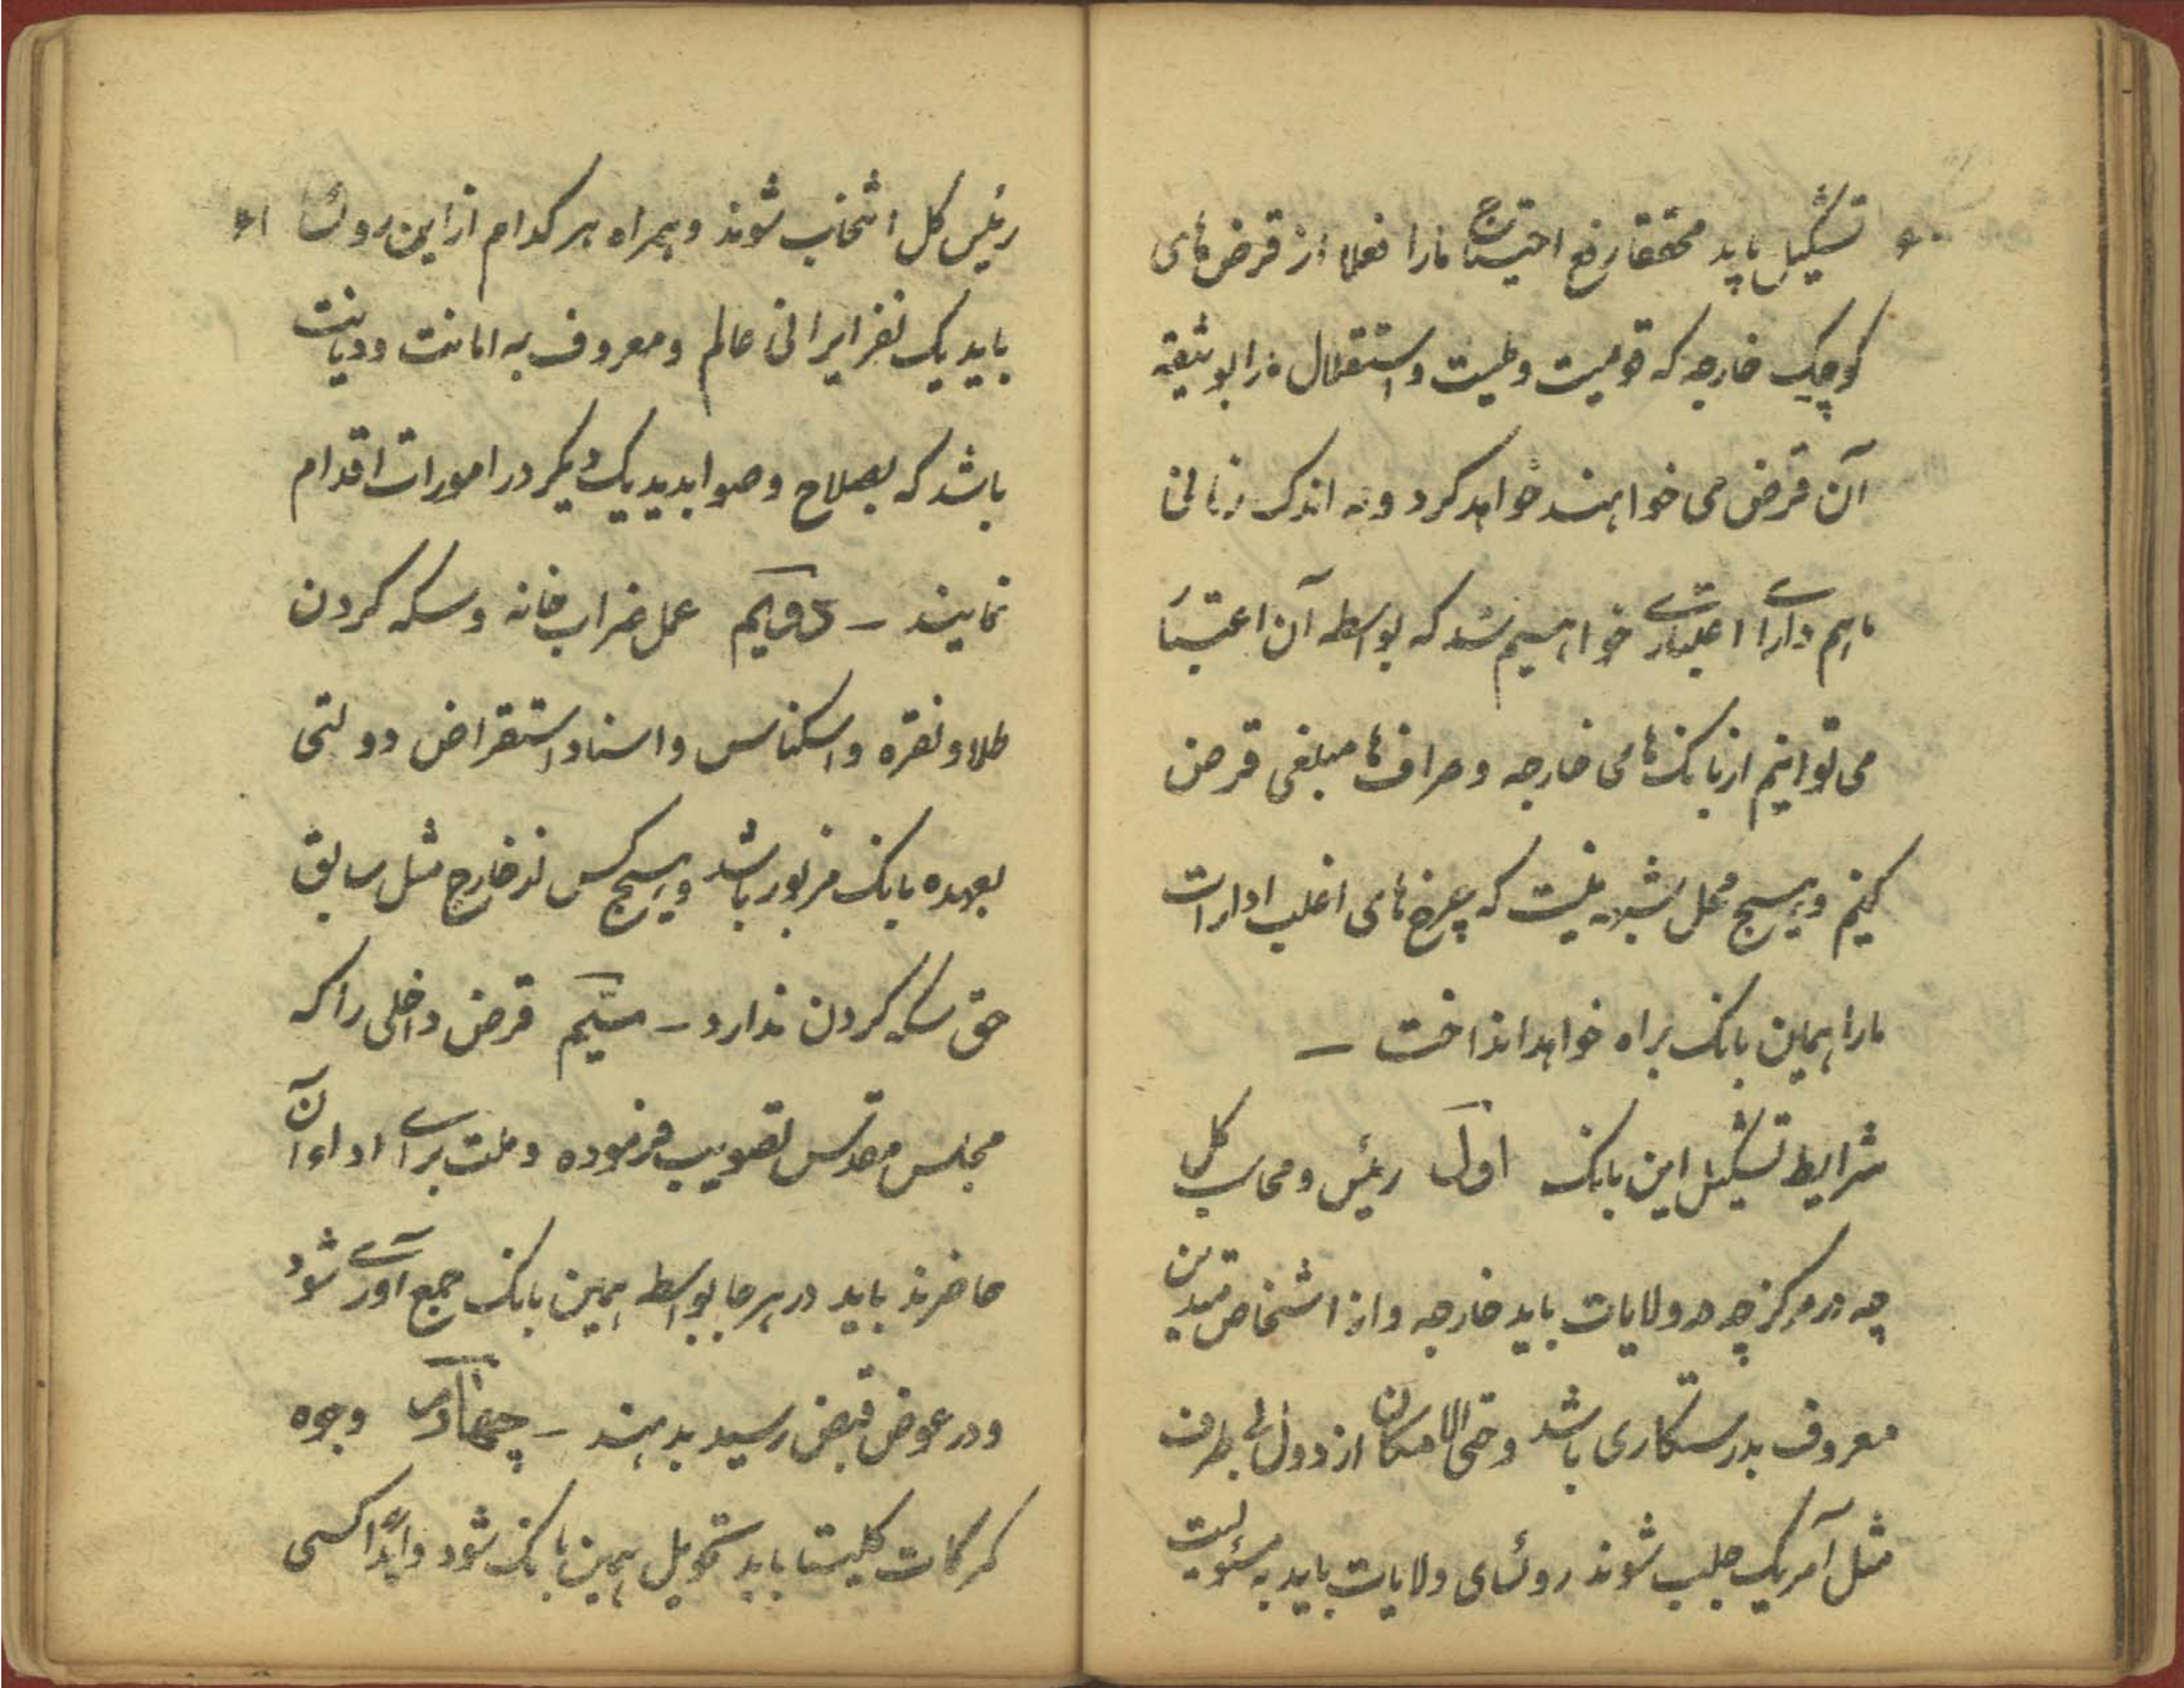 ۶۰ تشکیل یابد محققا رفع احتیاج مارا فعلا از قرض‌های
کوچک خارجه که قومیت و ملیت و استقلال مارا بوثیقه
آن قرض می خواهند خواهد کرد و به اندک زمانی
ماهم دارای اعتباری خواهیم شد که بواسطه آن اعتبار
می توانیم از بانک‌های خارجه و صراف‌ها مبلغی قرض
کنیم و هیچ محل شبهه نیست که چرخ‌های اغلب ادارات
مارا همین بانک براه خواهد انداخت —
شرایط تشکیل این بانک اول رئیس و محاسب کل
چه در مرکز چه در ولایات باید خارجه و از اشخاص متدین
معروف بدرستکاری باشد و حتی الامکان از دول بی طرف
مثل آمریک جلب شوند روئسای ولایات باید به مسئولیت
رئیس کل انتخاب شوند و همراه هر کدام از این روئسا ۶۱
باید یک نفر ایرانی عالم و معروف به امانت و دیانت
باشد که بصلاح و صوابدید یک دیگر در امورات اقدام
نمایند — دویم عمل ضراب خانه و سکه کردن
طلا و نقره و اسکناس و اسناد استقراض دولتی
بعهده بانک مزبور باشد و هیچ کس از خارج مثل سابق
حق سکه کردن ندارد — سیم قرض داخلی را که
مجلس مقدس تصویب فرموده و ملت برای اداء آن
حاضرند باید در هر جا بواسطه همین بانک جمع آوری شود
و در عوض قبض رسید بدهند — چهارم وجوه
گمرکات کلیتا باید تحویل همین بانک شود و ابدا کسی